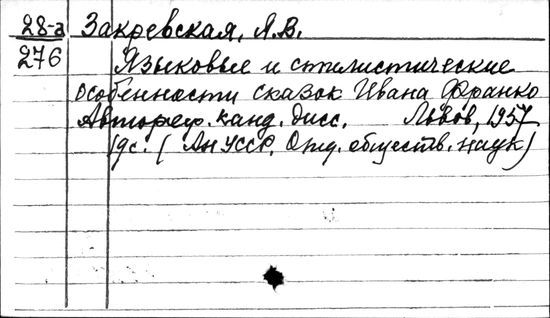 28-а Закревская, Я.В.
276 Языковые и стилистические
особенности сказок Ивана Франко
Автореф. канд. дисс. Львов, 1957
19с. (АН УССР. Отд. обществ. наук)